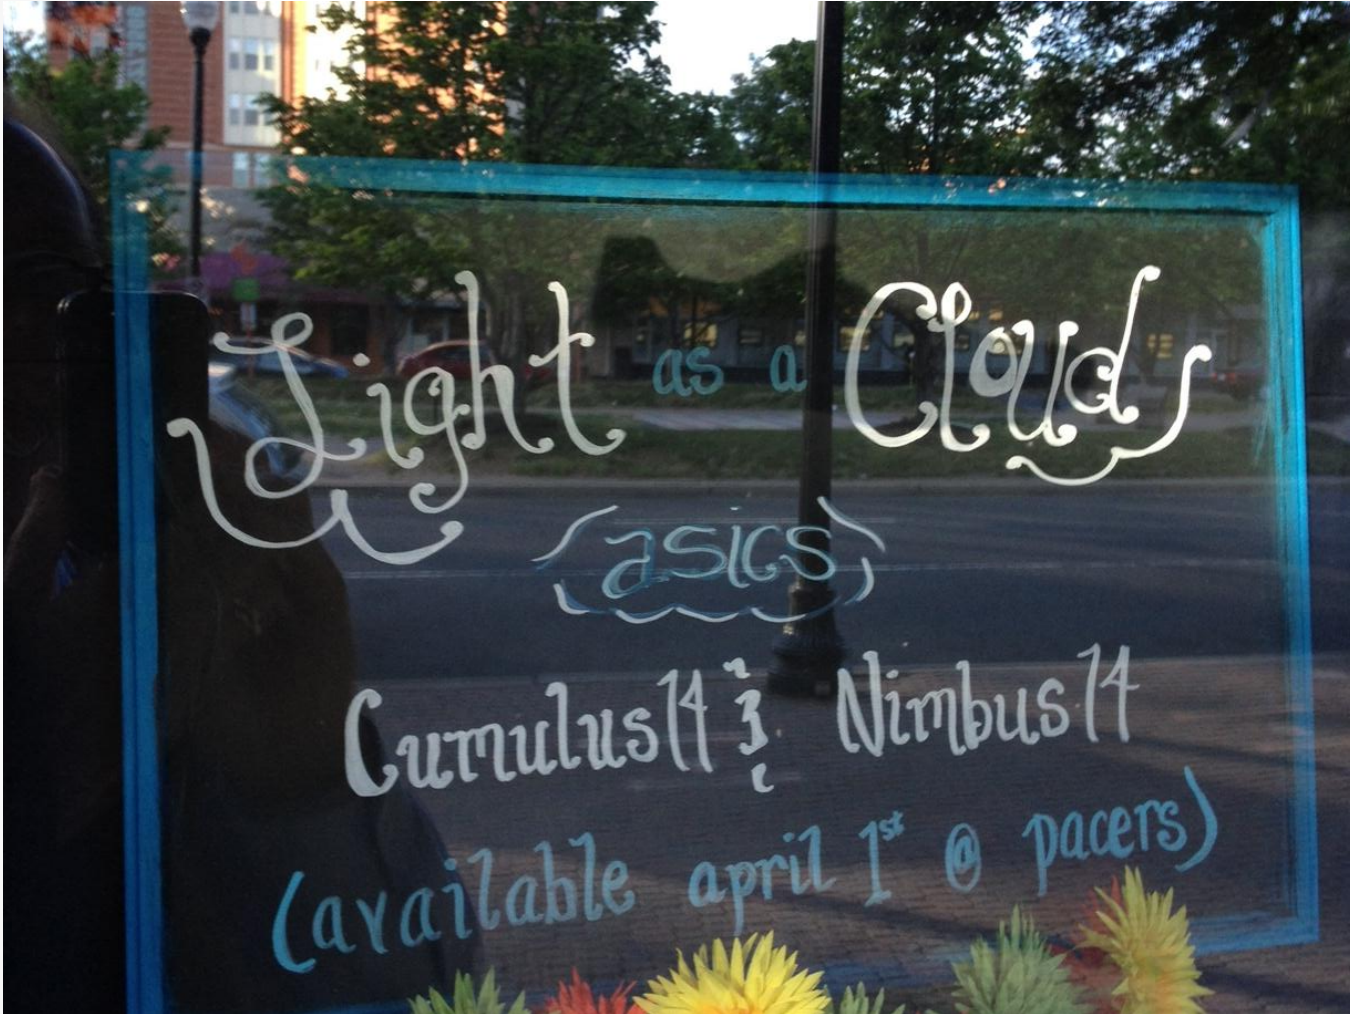 Light as a Cloud
asics
Cumulus 14 & Nimbus 14
(available april 1st @ pacers)